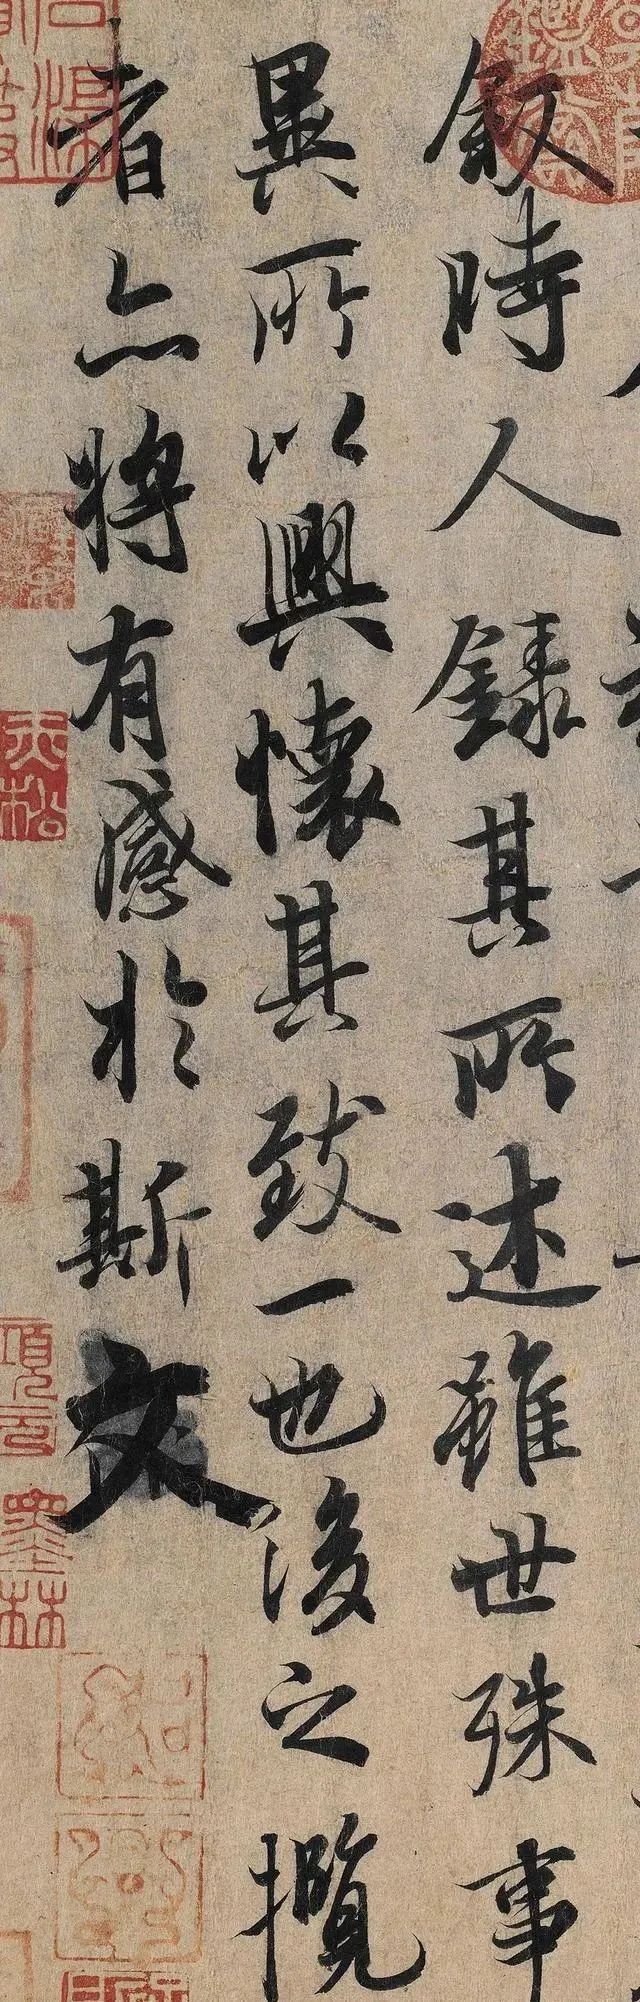 敘時人錄其所述雖世殊事
異所以興懷其致一也後之攬
者亦將有感於斯文